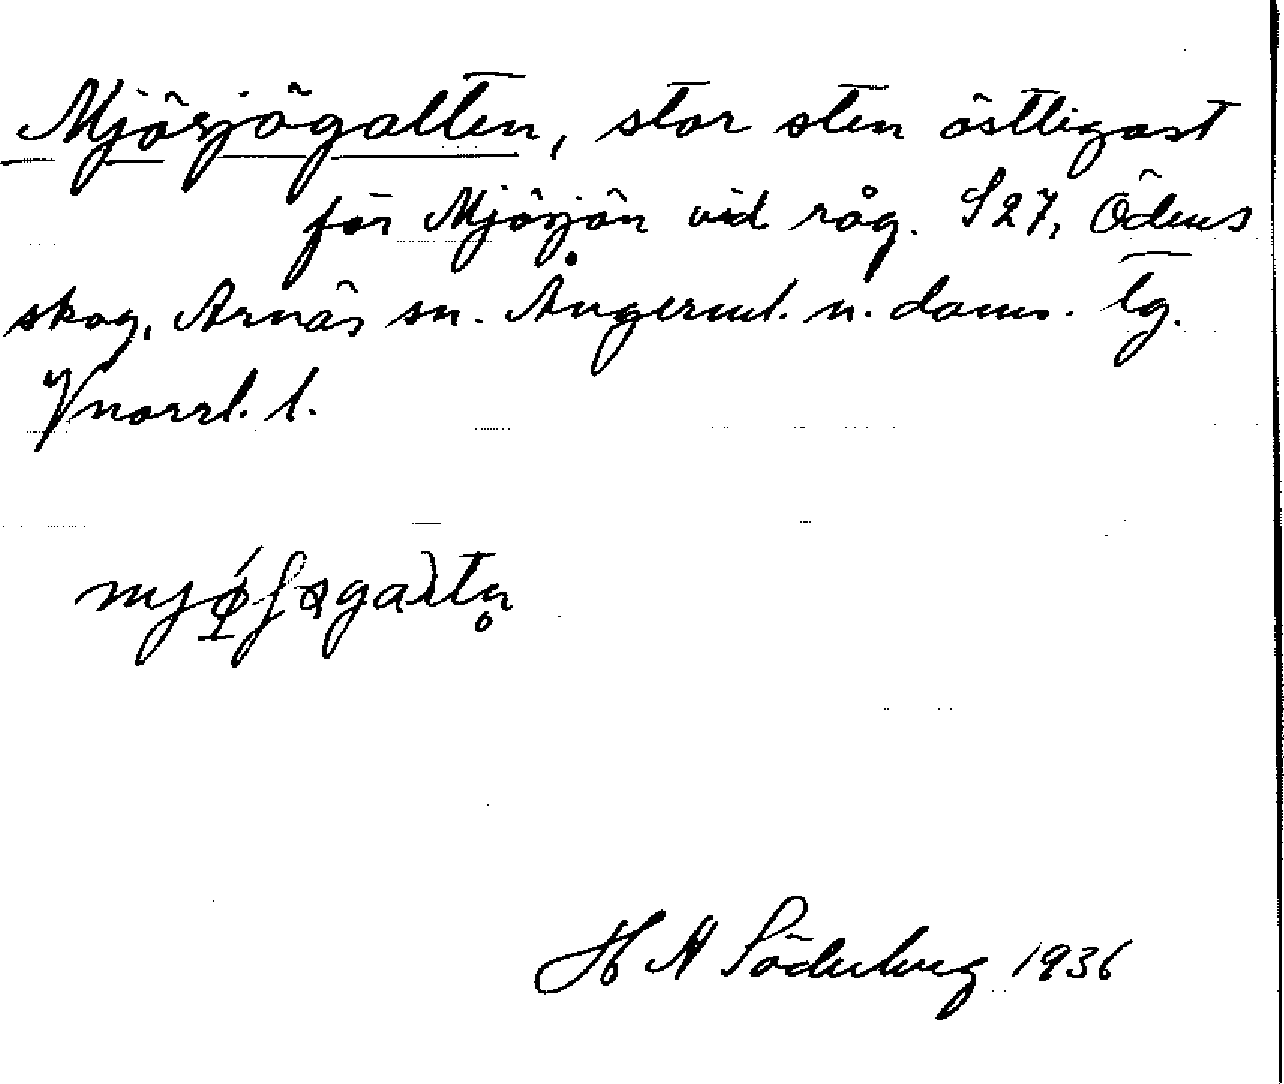 Mjösjögalten, stor sten östligast
för Mjösjön vid råg. S27, Ödens
skog, Arnäs sn. Ångerml. n. doms. tg.
Vnorrl. l.
H A Söderberg 1936